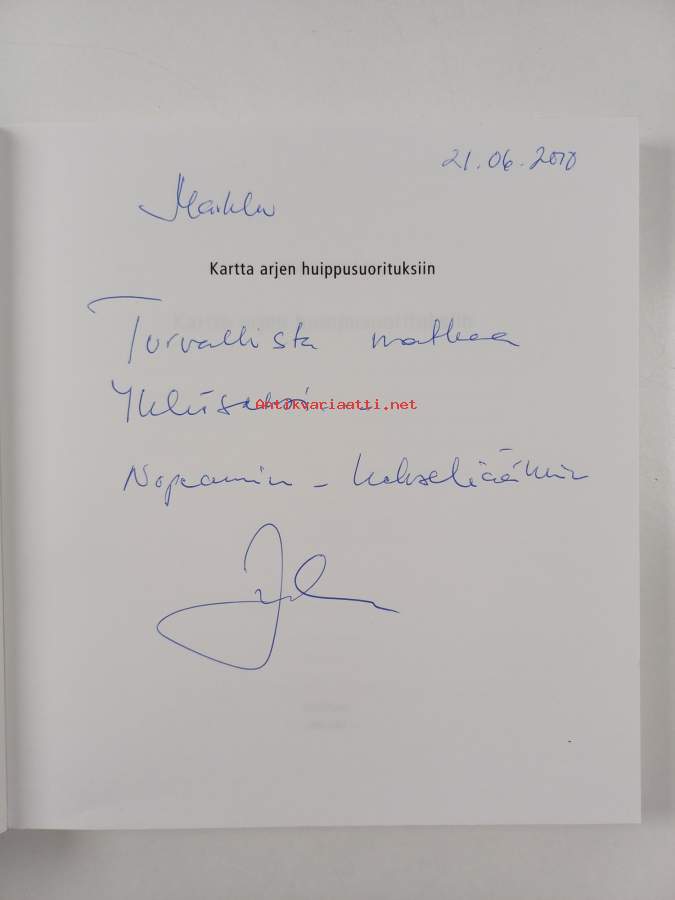 21.06.2010
Markku
Kartta arjen huippusuorituksiin
Turvallista matkaa
Antikvariaatti.net
Nopeammin -